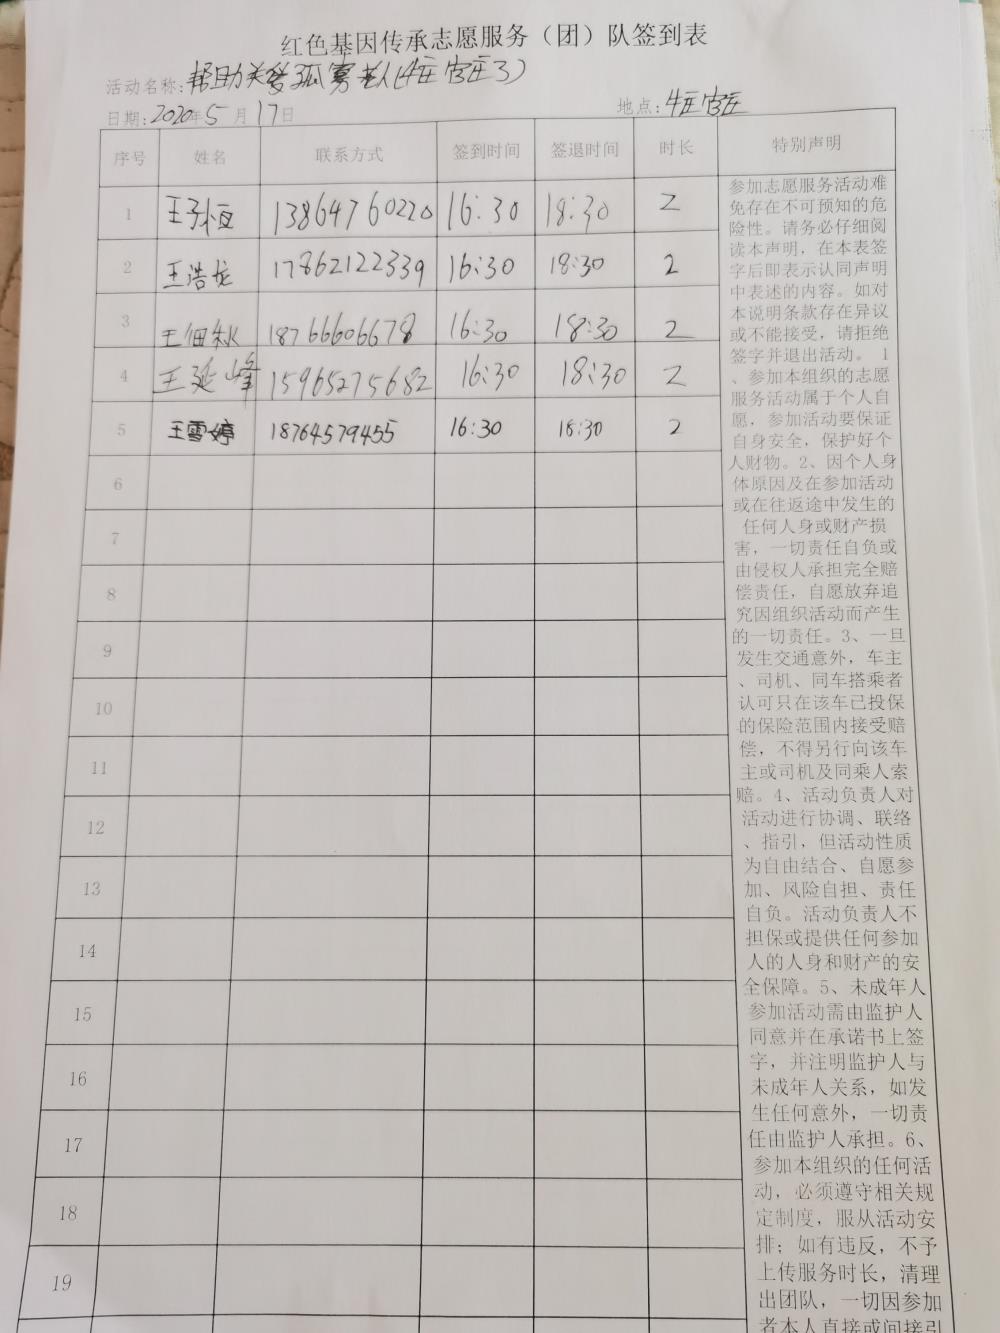 红色基因传承志愿服务（团）队签到表
活动名称:帮助关爱孤寡老人(牛王官庄3)
日期:2020年5月17日 地点:牛王官庄
序号 姓名 联系方式 签到时间 签退时间 时长 特别声明
1 王子恒 13864760220 16:30 18:30 2
2 王浩龙 17862122339 16:30 18:30 2
3 王佃秋 18766606678 16:30 18:30 2
4 王延峰 15965275682 16:30 18:30 2
5 王雪婷 18764579455 16:30 18:30 2
6
7
8
9
10
11
12
13
14
15
16
17
18
19
参加志愿服务活动难
免存在不可预知的危
险性。请务必仔细阅
读本声明，在本表签
字后即表示认同声明
中表述的内容。如对
本说明条款存在异议
或不能接受，请拒绝
签字并退出活动。 1
、参加本组织的志愿
服务活动属于个人自
愿，参加活动要保证
自身安全，保护好个
人财物。2、因个人身
体原因及在参加活动
或在往返途中发生的
任何人身或财产损
害，一切责任自负或
由侵权人承担完全赔
偿责任，自愿放弃追
究因组织活动而产生
的一切责任。3、一旦
发生交通意外，车主
、司机、同车搭乘者
认可只在该车已投保
的保险范围内接受赔
偿，不得另行向该车
主或司机及同乘人索
赔。4、活动负责人对
活动进行协调、联络
、指引，但活动性质
为自由结合、自愿参
加、风险自担、责任
自负。活动负责人不
担保或提供任何参加
人的人身和财产的安
全保障。5、未成年人
参加活动需由监护人
同意并在承诺书上签
字，并注明监护人与
未成年人关系，如发
生任何意外，一切责
任由监护人承担。6、
参加本组织的任何活
动，必须遵守相关规
定制度，服从活动安
排；如有违反，不予
上传服务时长，清理
出团队，一切因参加
者本人直接或间接引